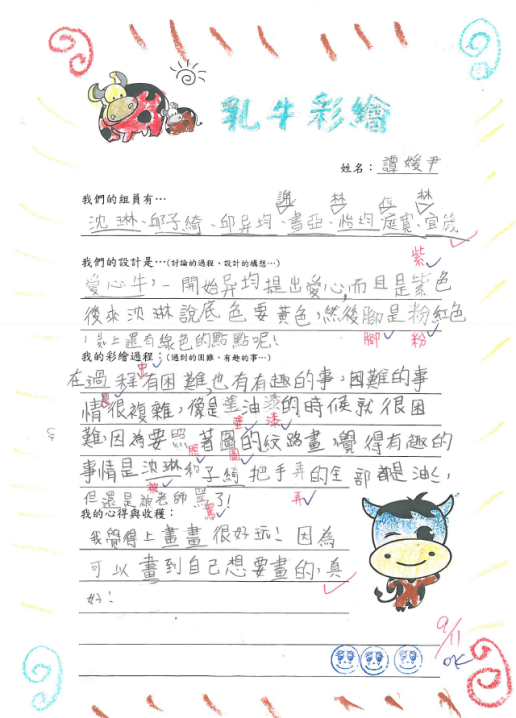 乳牛彩繪
姓名：譚媛尹
我們的組員有…
謝 林 伍 林
沈琳、邱子綺、邱异均、書亞、怡均、庭寬、宜箴
我們的設計是…(討論的過程、設計的構想…)
紫
愛心牛，一開始异均提出愛心，而且是紫色
後來沈琳說底色要黃色，然後腳是粉紅色
，身上還有綠色的點點呢！
腳 粉
我的彩繪過程：(遇到的困難、有趣的事…)
在過程中有困難，也有有趣的事，困難的事
情很複雜，像是塗油漆的時候就很困
塗 漆
難，因為要照著圖的紋路畫，覺得有趣的
照 圖
事情是沈琳和子綺把手弄的全部都是油，
被
但還是被老師罵了！
罵 弄
我的心得與收穫：
我覺得上畫畫很好玩！因為
可以畫到自己想要畫的，真
好！
9/11
OK